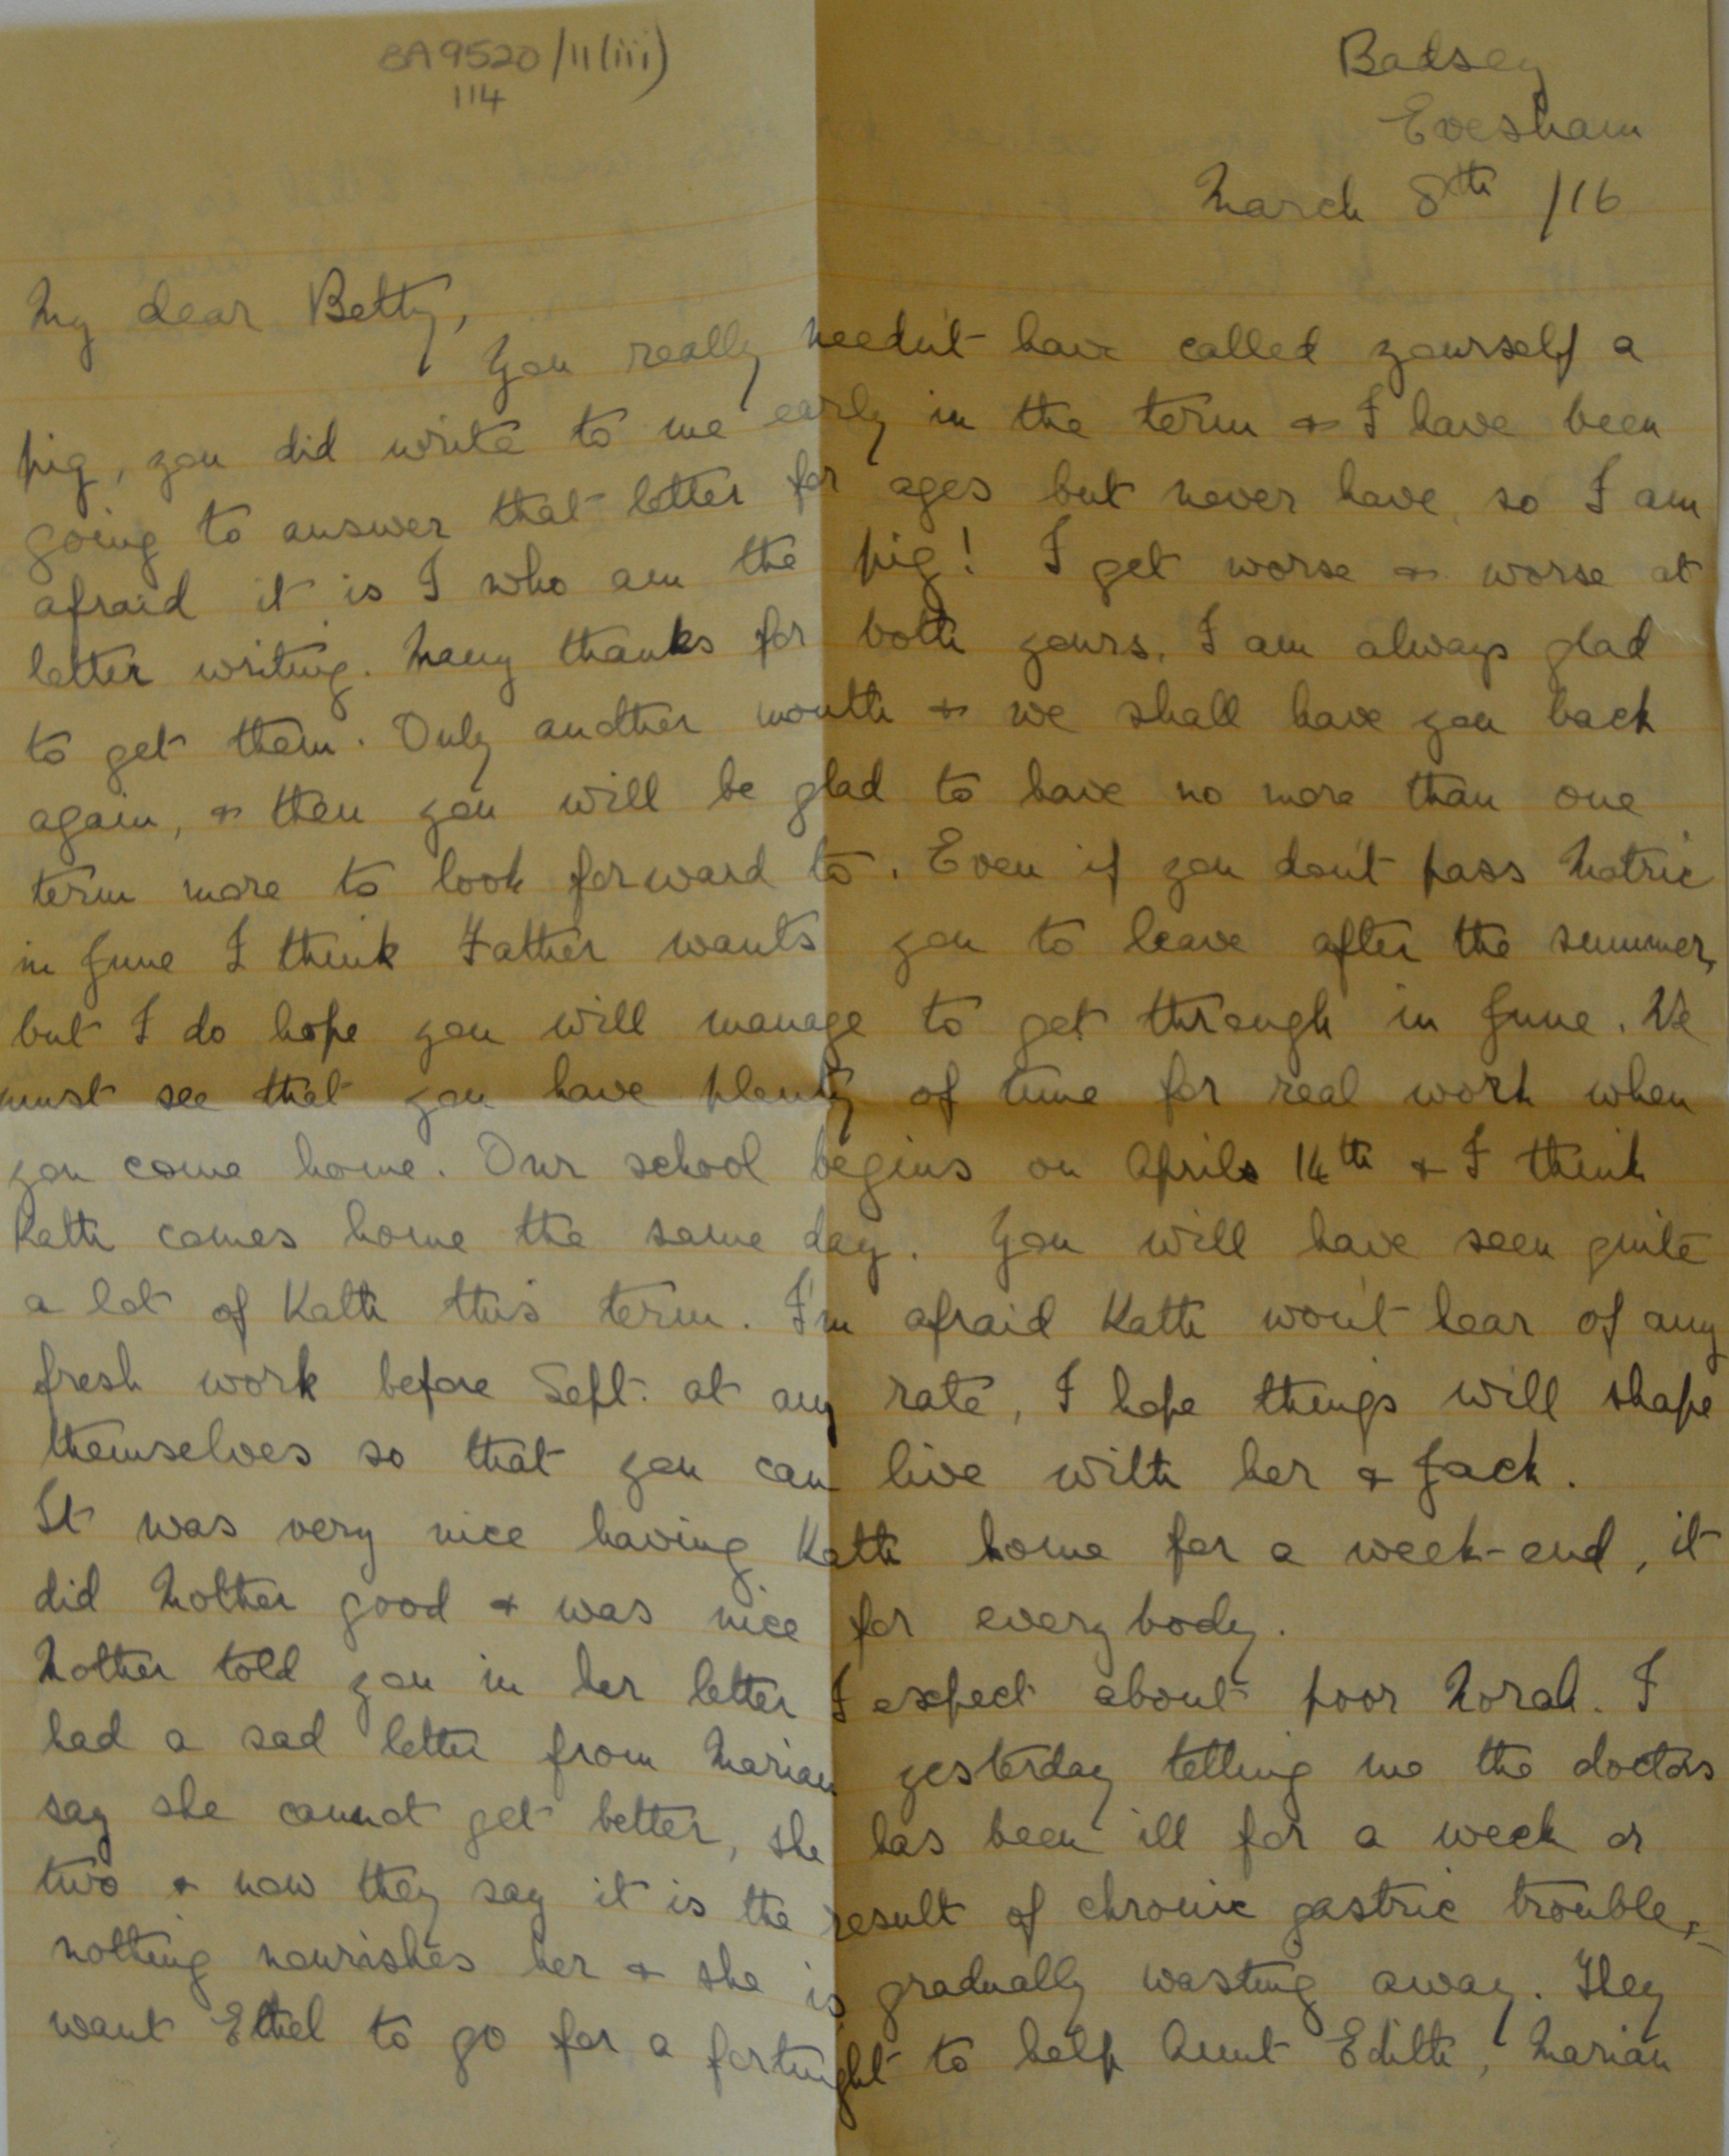 BA9520/11(iii)
114
Badsey
Evesham
March 8th /16
My dear Betty,
You really needn't have called yourself a
pig, you did write to me early in the term & I have been
going to answer that letter for ages but never have, so I am
afraid it is I who am the pig! I get worse & worse at
letter writing. Many thanks for both yours, I am always glad
to get them. Only another month & we shall have you back
again, & then you will be glad to have no more than one
term more to look forward to. Even if you don't pass Matric
in June I think Father wants you to leave after the summer,
but I do hope you will manage to get through in June. We
must see that you have plenty of time for real work when
you come home. Our school begins on April 14th & I think
Kath comes home the same day. You will have seen quite
a lot of Kath this term. I'm afraid Kath won't hear of any
fresh work before Sept: at any rate, I hope things will shape
themselves so that you can live with her & Jack.
It was very nice having Kath home for a week-end, it
did Mother good & was nice for everybody.
Mother told you in her letter I expect about poor Norah. I
had a sad letter from Marian yesterday telling me the doctors
say she cannot get better, she has been ill for a week or
two & now they say it is the result of chronic gastric trouble,
nothing nourishes her & she is gradually wasting away. They
want Ethel to go for a fortnight to help Aunt Edith, Marian